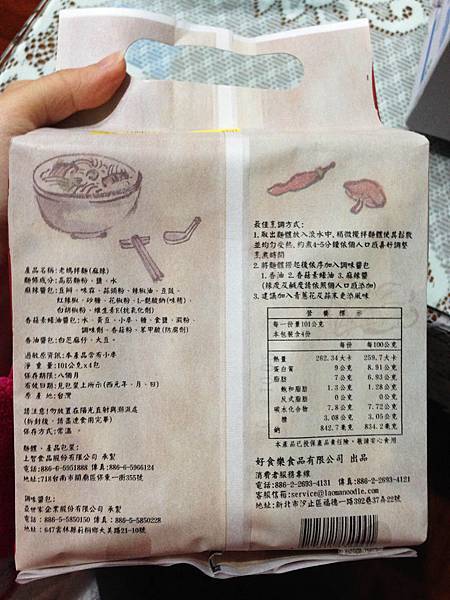 產品名稱:老媽拌麵(麻辣)
麵體成分:高筋麵粉、鹽、水
麻辣醬包:豆瓣、味霖、蒜頭粉、辣椒油、豆豉、
紅辣椒、砂糖、花椒粉、L-麩酸鈉(味精)
白胡椒粉、維生素E(抗氧化劑)
香菇素蠔油醬包:水、黃豆、小麥、糖、食鹽、澱粉、
調味劑、香菇粉、苯甲酸(防腐劑)
香油醬包:白芝麻仔、大豆。
過敏原資訊:本產品含有小麥
淨 重 量:101公克x4包
保存期限:八個月
有效日期:見包裝上所示(西元年、月、日)
原 產 地:台灣
請注意!勿放置在陽光直射與潮濕處
(拆封後,請盡速食用完畢)
保存方式:常溫。
麵體、產品包裝:
上智食品股份有限公司 承製
電話:886-6-5951888 傳真:886-6-5966124
地址:718台南市關廟區保東一街355號
調味醬包:
焱世家企業股份有限公司 承製
電話:886-5-5850150 傳真:886-5-5850228
地址:647雲林縣莿桐鄉大美路21-10號
最佳烹調方式:
1.取出麵體放入滾水中,稍微攪拌麵體使其鬆散
並均勻受熱,約煮4-5分鐘依個人口感喜好調整
烹煮時間
2.將麵體撈起後依序加入調味醬包
1.香油 2.香菇素蠔油 3.麻辣醬
(辣度及鹹度請依個人口味添加)
3.建議加入青蔥花及蒜末更添風味
營養標示
每一份量101公克
本包裝含4份
每份 每100公克
熱量 262.34大卡 259.7大卡
蛋白質 9公克 8.91公克
脂肪 7公克 6.93公克
飽和脂肪 1.3公克 1.28公克
反式脂肪 0公克 0公克
碳水化合物 7.8公克 7.72公克
糖 3.08公克 3.05公克
鈉 842.7毫克 834.2毫克
本產品已投保產品責任險,敬請安心食用
好食樂食品有限公司 出品
消費者服務專線
電話:886-2-2693-4131 傳真:886-2-2693-4121
客服信箱:service@laomanoodle.com
地址:新北市汐止區福德一路392巷37弄22號